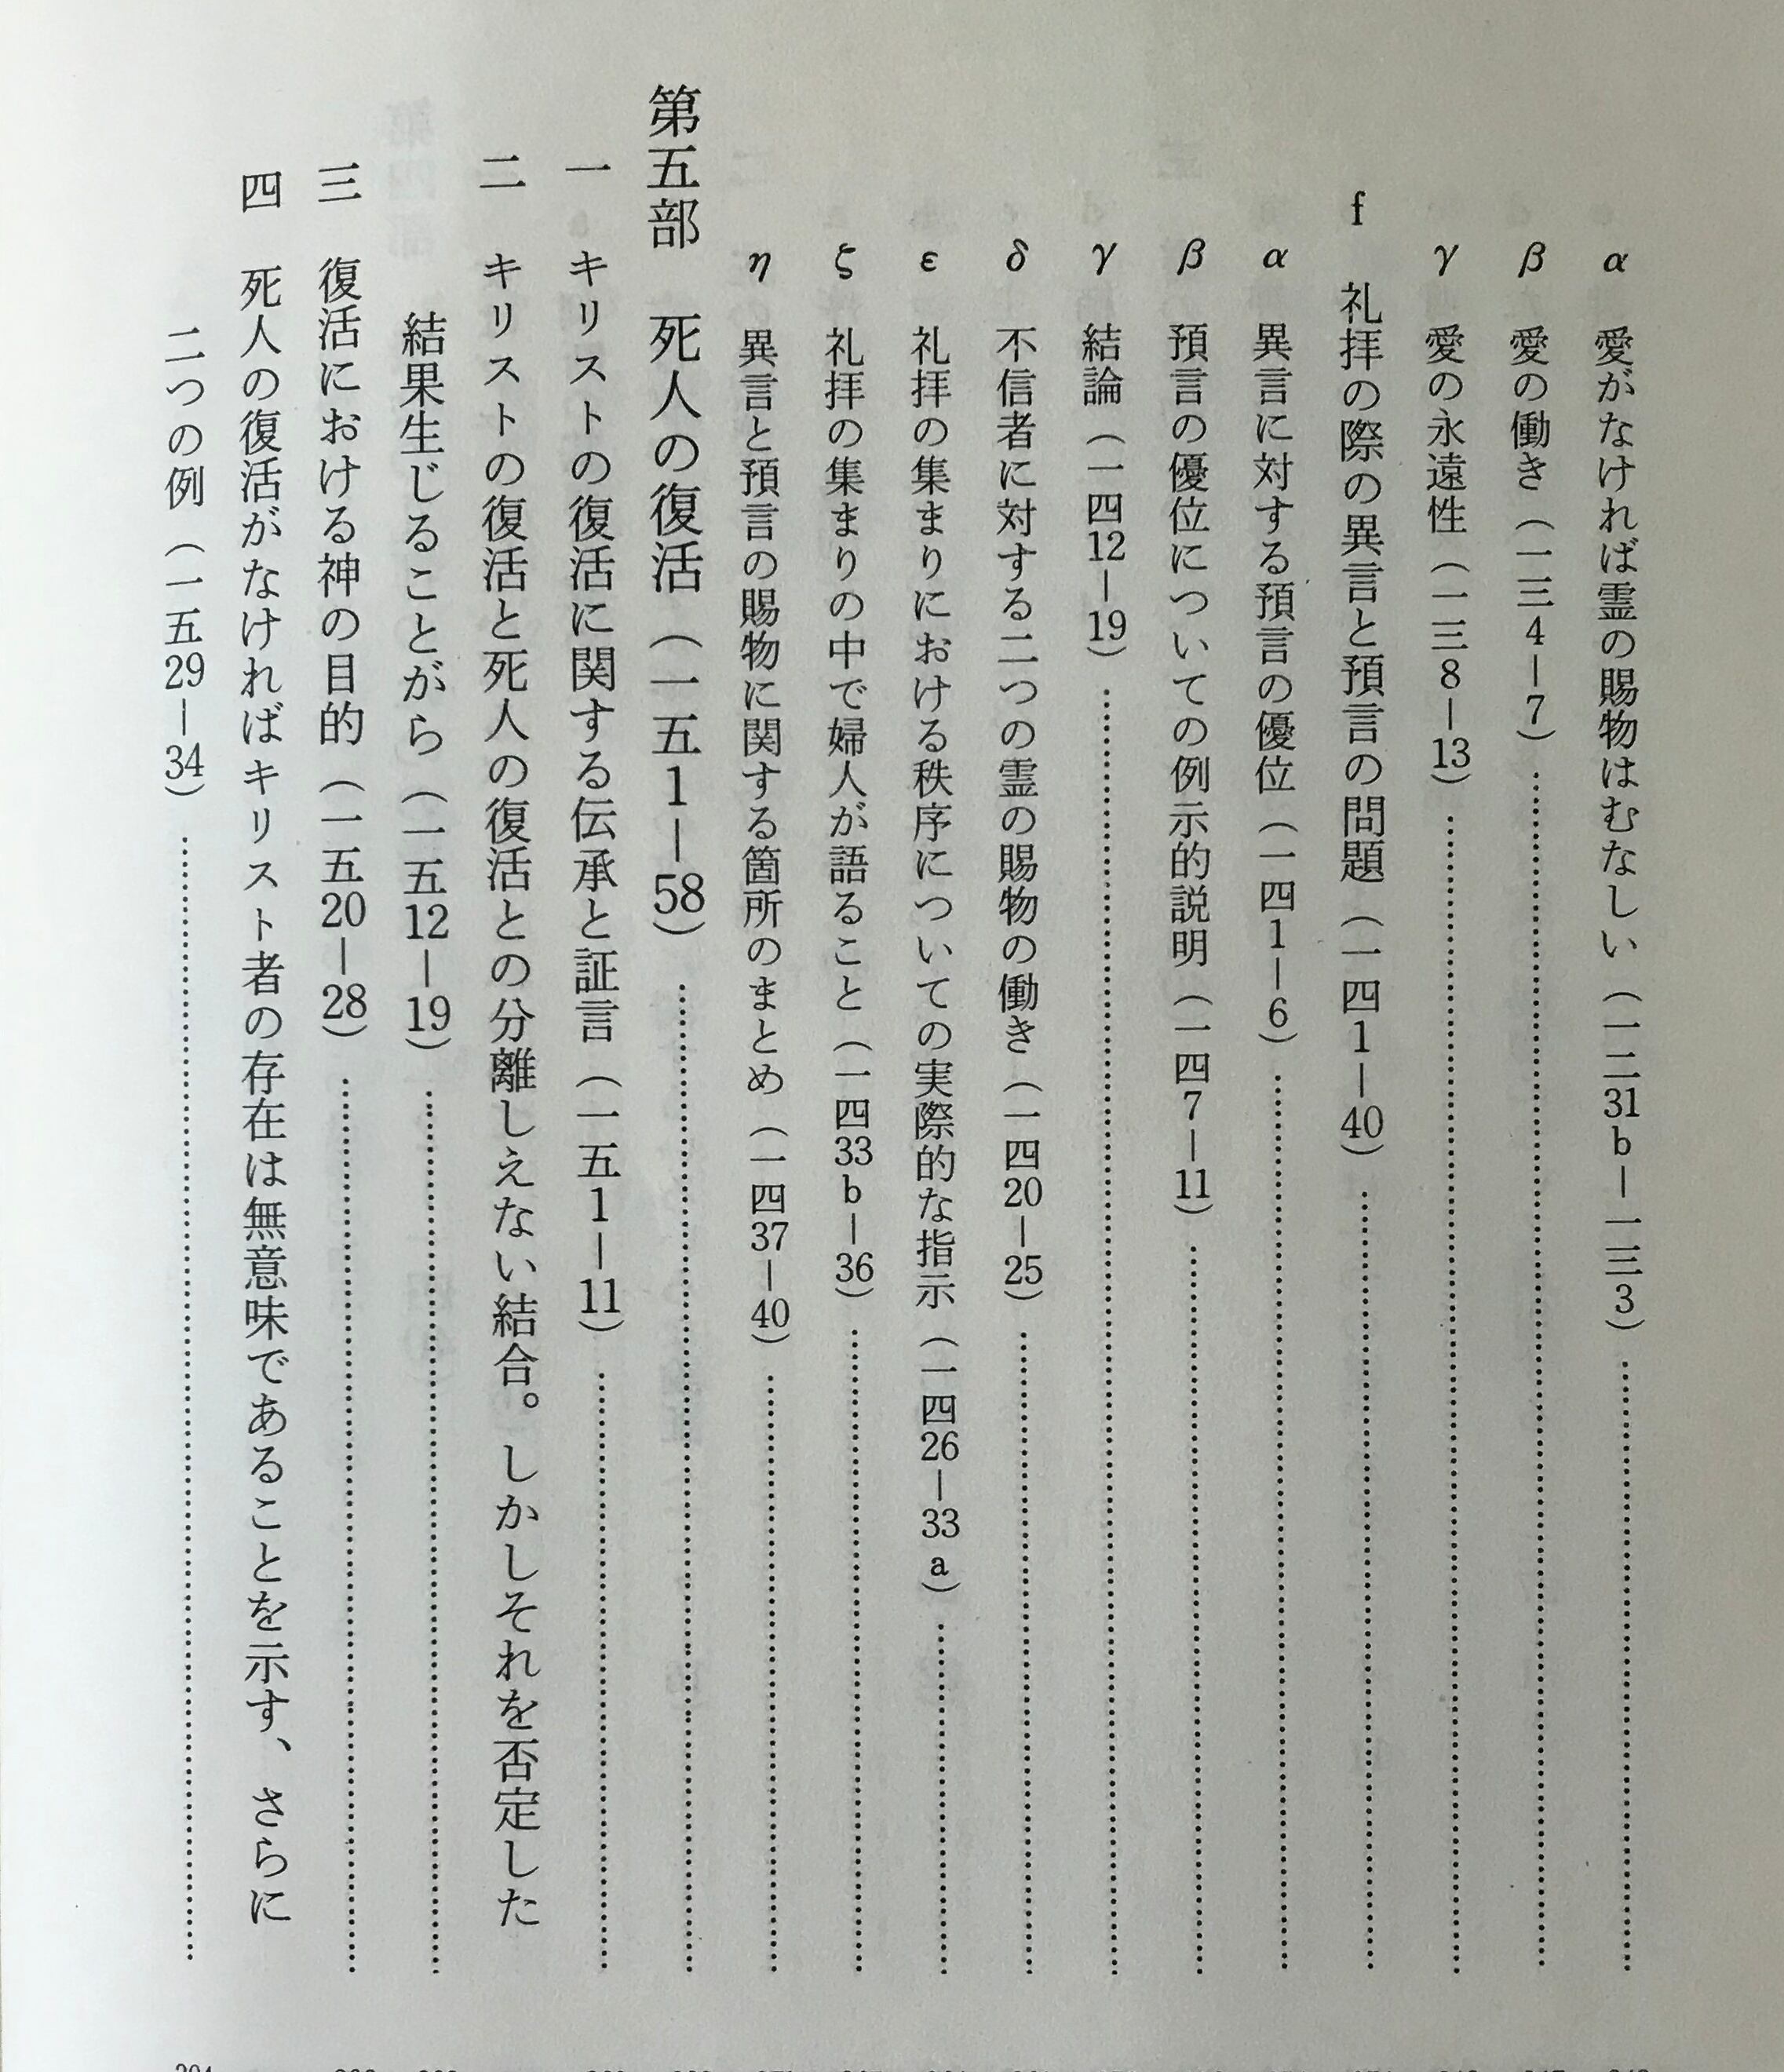 α 愛がなければ霊の賜物はむなしい（一二31b―一三3）
β 愛の働き（一三4―7）
γ 愛の永遠性（一三8―13）
f 礼拝の際の異言と預言の問題（一四1―40）
α 異言に対する預言の優位（一四1―6）
β 預言の優位についての例示的説明（一四7―11）
γ 結論（一四12―19）
δ 不信者に対する二つの霊の賜物の働き（一四20―25）
ε 礼拝の集まりにおける秩序についての実際的な指示（一四26―33a）
ζ 礼拝の集まりの中で婦人が語ること（一四33b―36）
η 異言と預言の賜物に関する箇所のまとめ（一四37―40）
第五部 死人の復活（一五1―58）
一 キリストの復活に関する伝承と証言（一五1―11）
二 キリストの復活と死人の復活との分離しえない結合。しかしそれを否定した
結果生じることがら（一五12―19）
三 復活における神の目的（一五20―28）
四 死人の復活がなければキリスト者の存在は無意味であることを示す、さらに
二つの例（一五29―34）